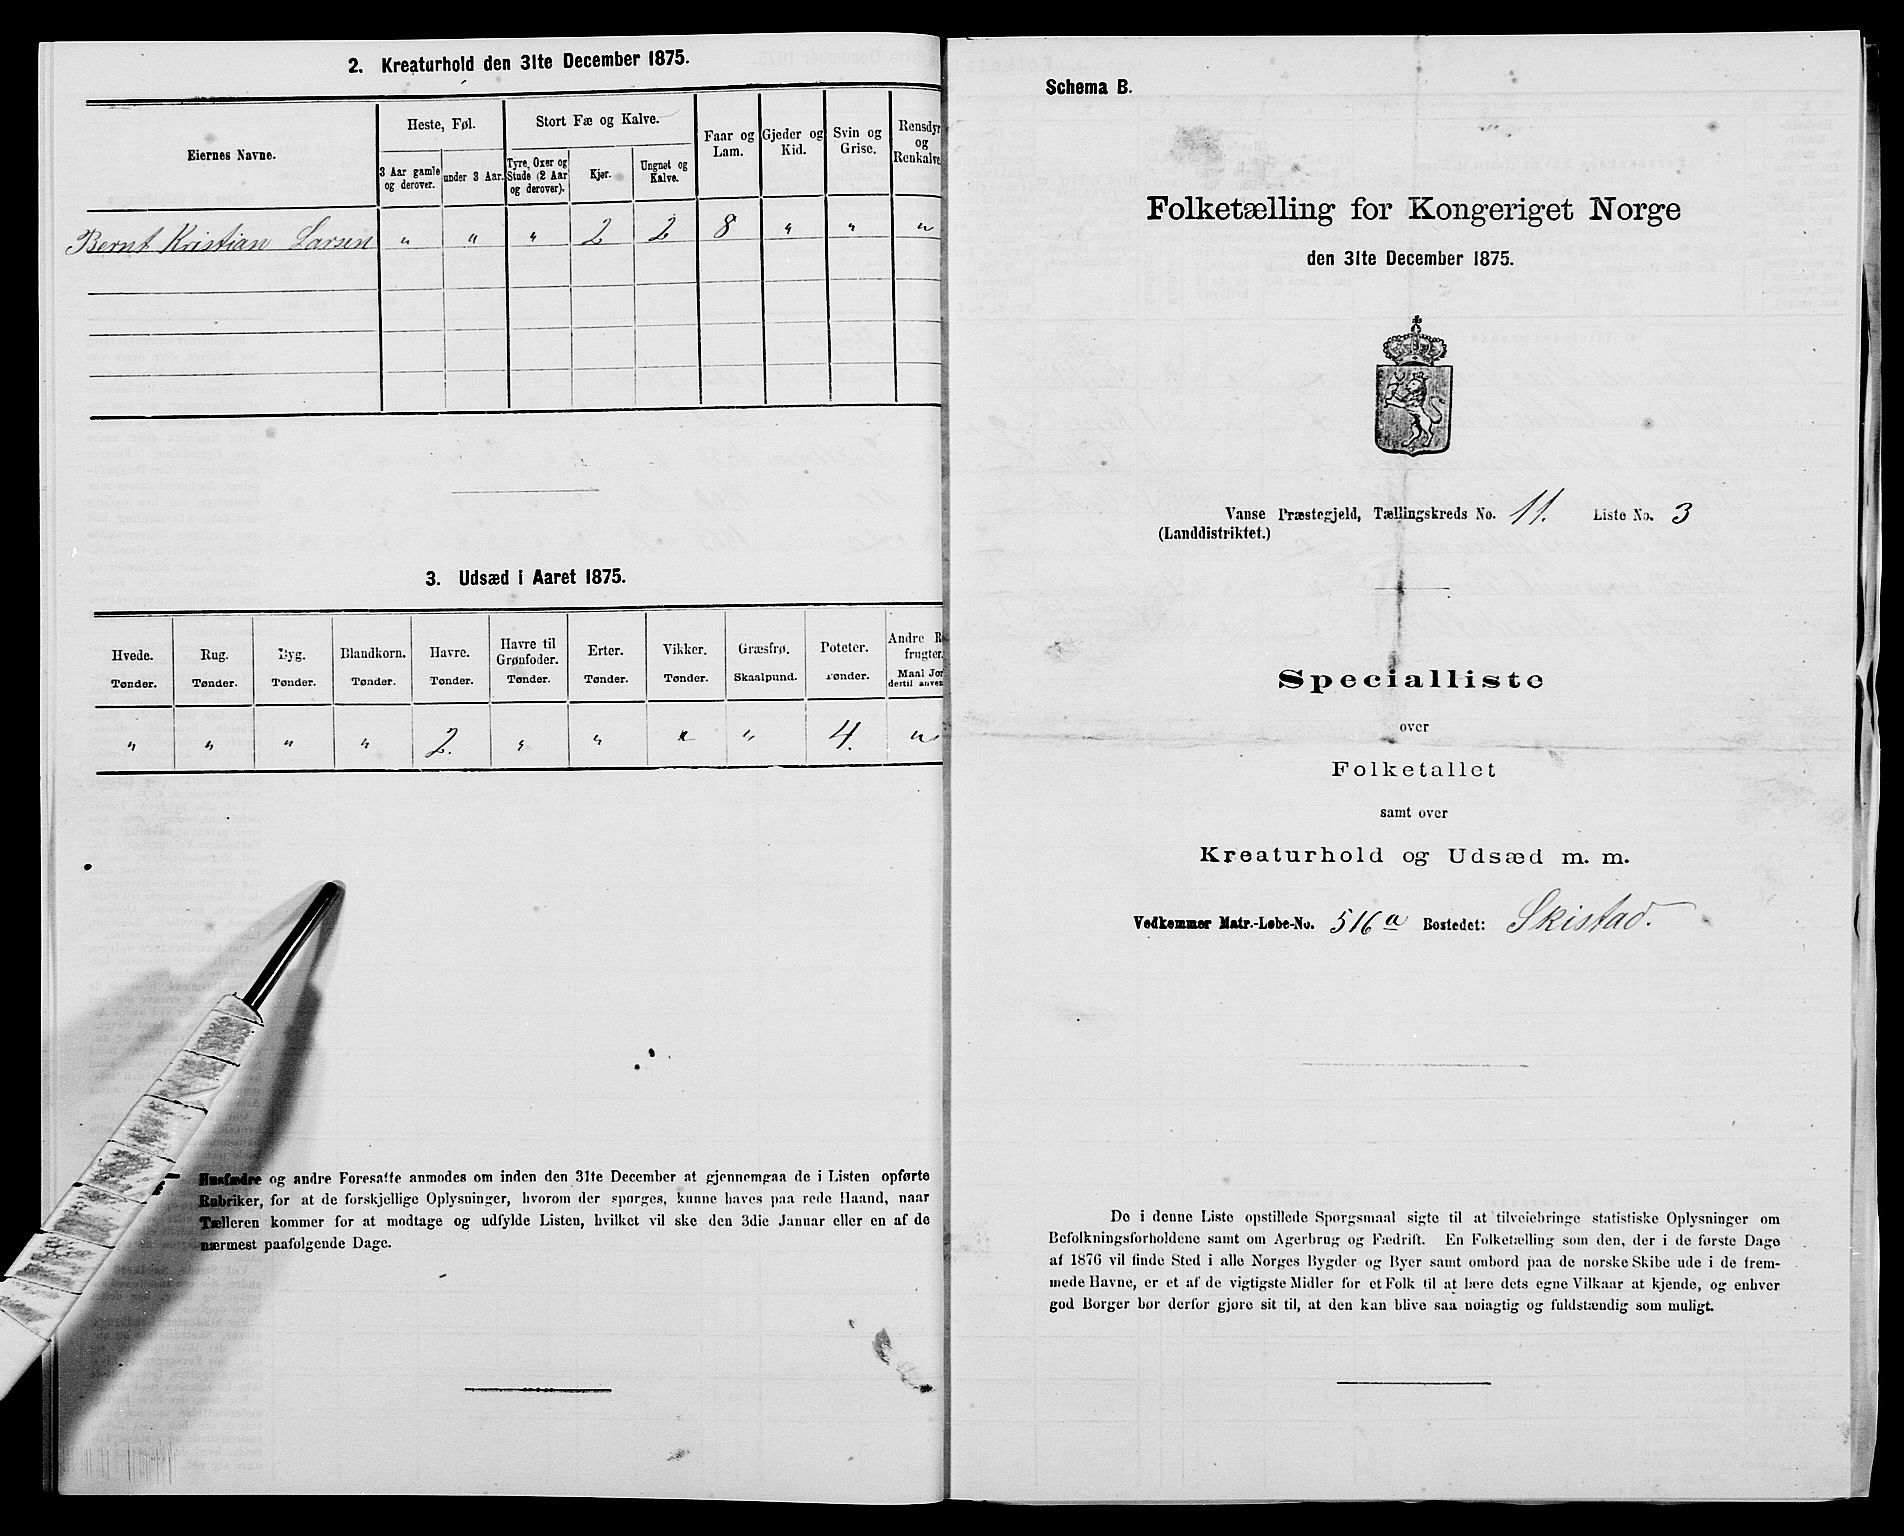 2. Kreaturhold den 31te December 1875.
Eiernes Navne.
Heste, Føl.
Stort Fæ og Kalve.
Faar og Lam.
Gjeder og Kid.
Svin og Grise.
Rensdyr og Renkalve.
3 Aar gamle og derover.
under 3 Aar.
Tyre, Oxer og Stude (2 Aar og derover).
Kjør.
Ungnøt og Kalve.
Bernt Kristian Larsen " " " 2 2 8 " " "
3. Udsæd i Aaret 1875.
Hvede. Rug. Byg. Blandkorn. Havre. Havre til Grønfoder. Erter. Vikker. Græsfrø. Poteter. Andre
frugter.
Tønder. Tønder. Tønder. Tønder. Tønder. Tønder. Tønder. Tønder. Skaalpund. Tønder. Maal
dertil
" " " " 2. " " " " 4. "
Husfædre og andre Foresatte anmodes om inden den 31te December at gjennemgaa de i Listen opførte
Rubriker, for at de forskjellige Oplysninger, hvorom der spørges, kunne haves paa rede Haand, naar
Tælleren kommer for at modtage og udfylde Listen, hvilket vil ske den 3die Januar eller en af de
nærmest paafølgende Dage.
Schema B.
Folketælling for Kongeriget Norge
den 31te December 1875.
Vanse Præstegjeld, Tællingskreds No. 11. Liste No. 3
(Landdistriktet.)
Specialliste
over
Folketallet
samt over
Kreaturhold og Udsæd m. m.
Vedkommer Matr.-Løbe-No. 516a Bostedet: Skistad.
De i denne Liste opstillede Spørgsmaal sigte til at tilveiebringe statistiske Oplysninger om
Befolkningsforholdene samt om Agerbrug og Fædrift. En Folketælling som den, der i de første Dage
af 1876 vil finde Sted i alle Norges Bygder og Byer samt ombord paa de norske Skibe ude i de frem-
mede Havne, er et af de vigtigste Midler for et Folk til at lære dets egne Vilkaar at kjende, og enhver
god Borger bør derfor gjøre sit til, at den kan blive saa nøiagtig og fuldstændig som muligt.